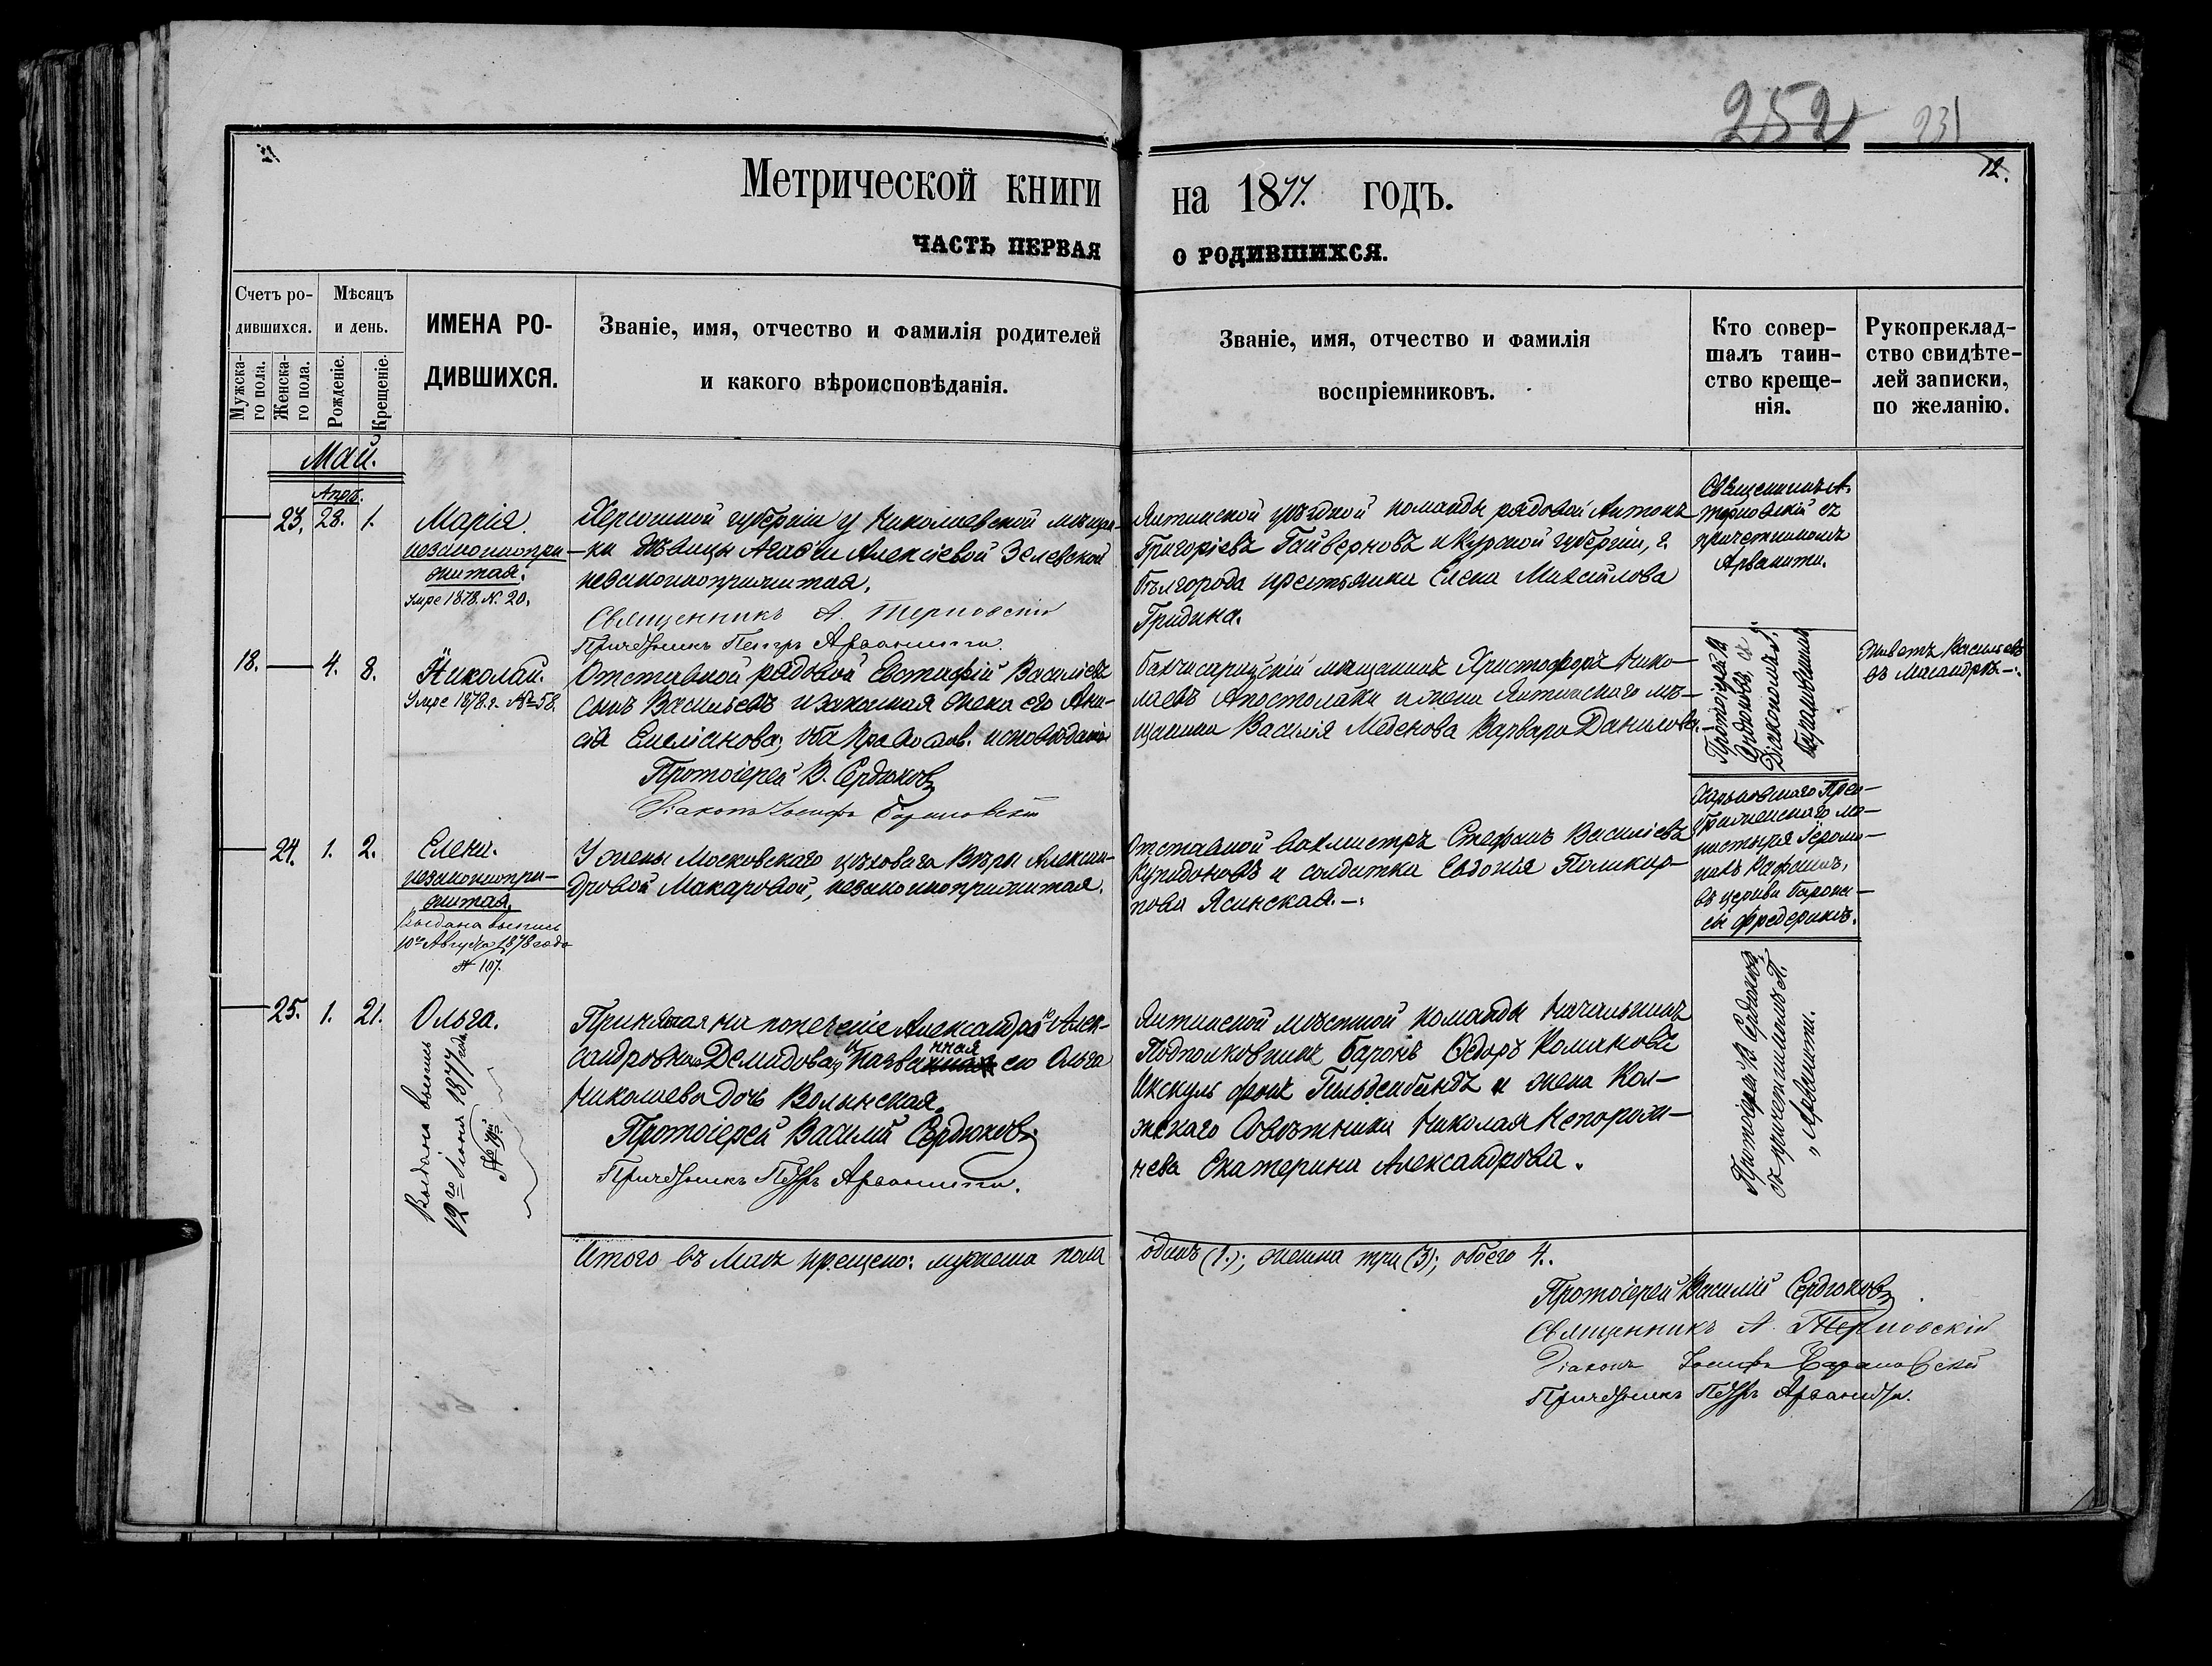 252
231
12.
Метрической книги на 1877. годъ.
ЧАСТЬ ПЕРВАЯ О РОДИВШИХСЯ.
Счетъ родившихся.
Мужскаго пола.
Женскаго пола.
Мѣсяцъ и день.
Рожденіе.
Крещеніе.
ИМЕНА РО-
ДИВШИХСЯ.
Званіе, имя, отчество и фамилія родителей
и какого вѣроисповѣданія.
Званіе, имя, отчество и фамилія
воспріемниковъ.
Кто совер-
шалъ таин-
ство креще-
нія.
Рукоприклад-
ство свидѣте-
лей записки,
по желанію.
Май.
Апр.
23. 28. 1.
Марія
незаконнопри-
житая.
Умре 1878. N. 20.
Херсонской губерніи у Николаевской мѣщан-
ки дѣвицы Агафіи Алексіевой Зелевской
незаконноприжитая.
Священникъ А. Терновскій
Причетникъ Петръ Арванити.
Ялтинской уѣздной команды рядовой Антонъ
Григоріевъ Гайверновъ и Курской губерніи, г.
Бѣлгорода крестьянка Елена Михайлова
Гридина.
Священникъ А.
Терновскій съ
причетникомъ
Арванити.
18. 4. 8.
Николай.
Умре 1878 г. № 58.
Отставной рядовой Евстафій Василіевъ
сынъ Васильевъ и законная жена его Ани-
сія Емеліанова; оба Православ. исповѣданія
Протоіерей В. Сердюковъ
Діаконъ Іосифъ Барановскій
Бахчисарайскій мѣщанинъ Христофоръ Нико-
лаевъ Апостолаки и жена Ялтинскаго мѣ-
щанина Василія Меденова Варвара Данилова.
Протоіерей В.
Сердюковъ, съ
Діакономъ І.
Барановскимъ
Живетъ Васильевъ
въ Масандрѣ.
24. 1. 2.
Елена.
незаконнопри-
житая.
Выдана выпись
10го Августа 1878 года
№ 107.
У жены Московскаго цѣховаго Вѣры Алексан-
дровой Макаровой, незаконноприжитая.
Отставной вахмистръ Стефанъ Василіевъ
Купидоновъ и солдатка Евдокія Поликар-
пова Ясинская.
Харьковскаго Пре-
ображенскаго мо-
настыря Іеромо-
нахъ Рафаилъ,
въ церкви бароне-
сы Фредериксъ.
25. 1. 21.
Ольга.
Выдана выпись
12го Іюня 1877 года
Принятая на попеченіе Александрою Алек-
сандровною Демидовою и названная ею Ольга
Николаева дочь Волынская.
Протоіерей Василій Сердюковъ
Причетникъ Петръ Арванити.
Ялтинской мѣстной команды Начальникъ
Подполковникъ Баронъ Ѳедоръ Романовъ
Икскуль фонъ Гильденбандъ и жена Кол-
жскаго Совѣтника Николая Непорож-
нева Екатерина Александрова.
Протоіерей В. Сердюковъ,
съ причетникомъ П.
Арванити.
Итого въ Маѣ крещено: мужеска пола одинъ (1.); женска три (3); обоего 4..
Протоіерей Василій Сердюковъ
Священникъ А. Терновскій
Діаконъ Іосифъ Барановскій
Причетникъ Петръ Арванити.